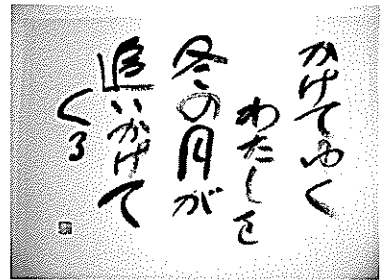 かけてゆく
わたしを
冬の月が
追いかけて
くる